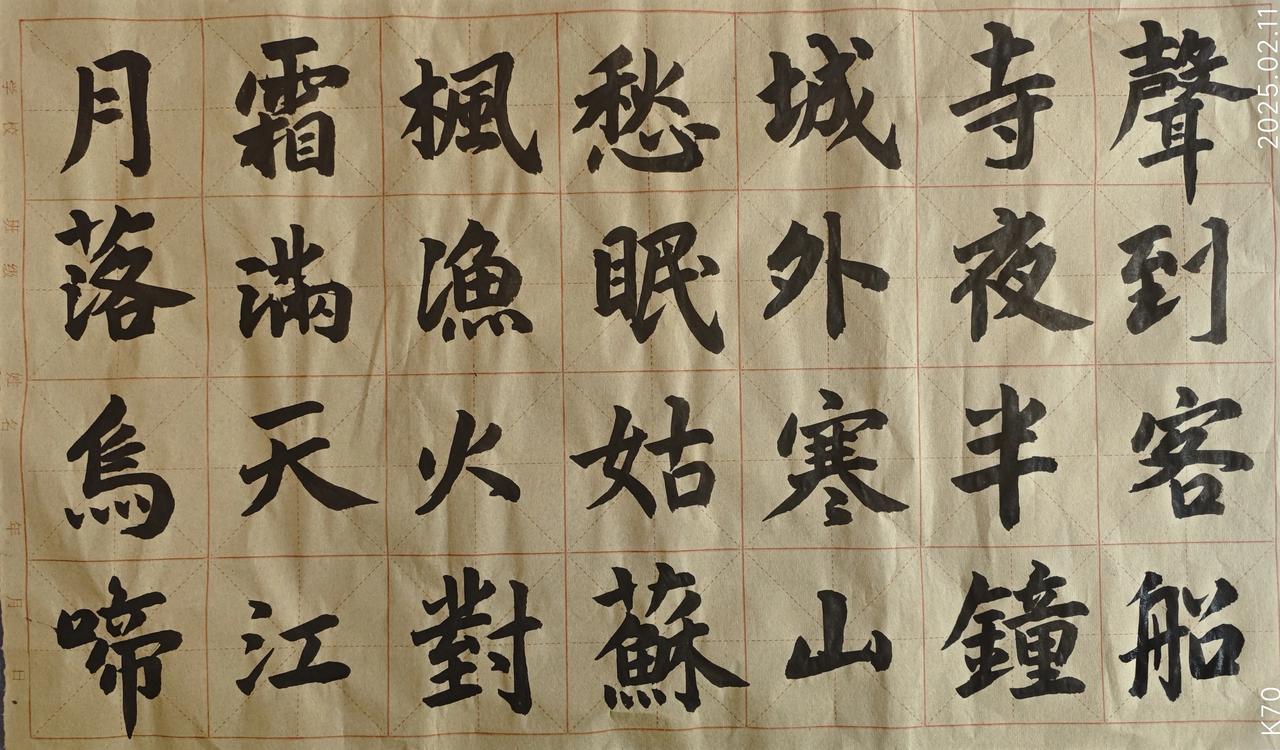 月落烏啼
霜滿天江
楓漁火對
愁眠姑蘇
城外寒山
寺夜半鐘
聲到客船
学校 班级 姓名 年 月 日
2025.02.11
K70